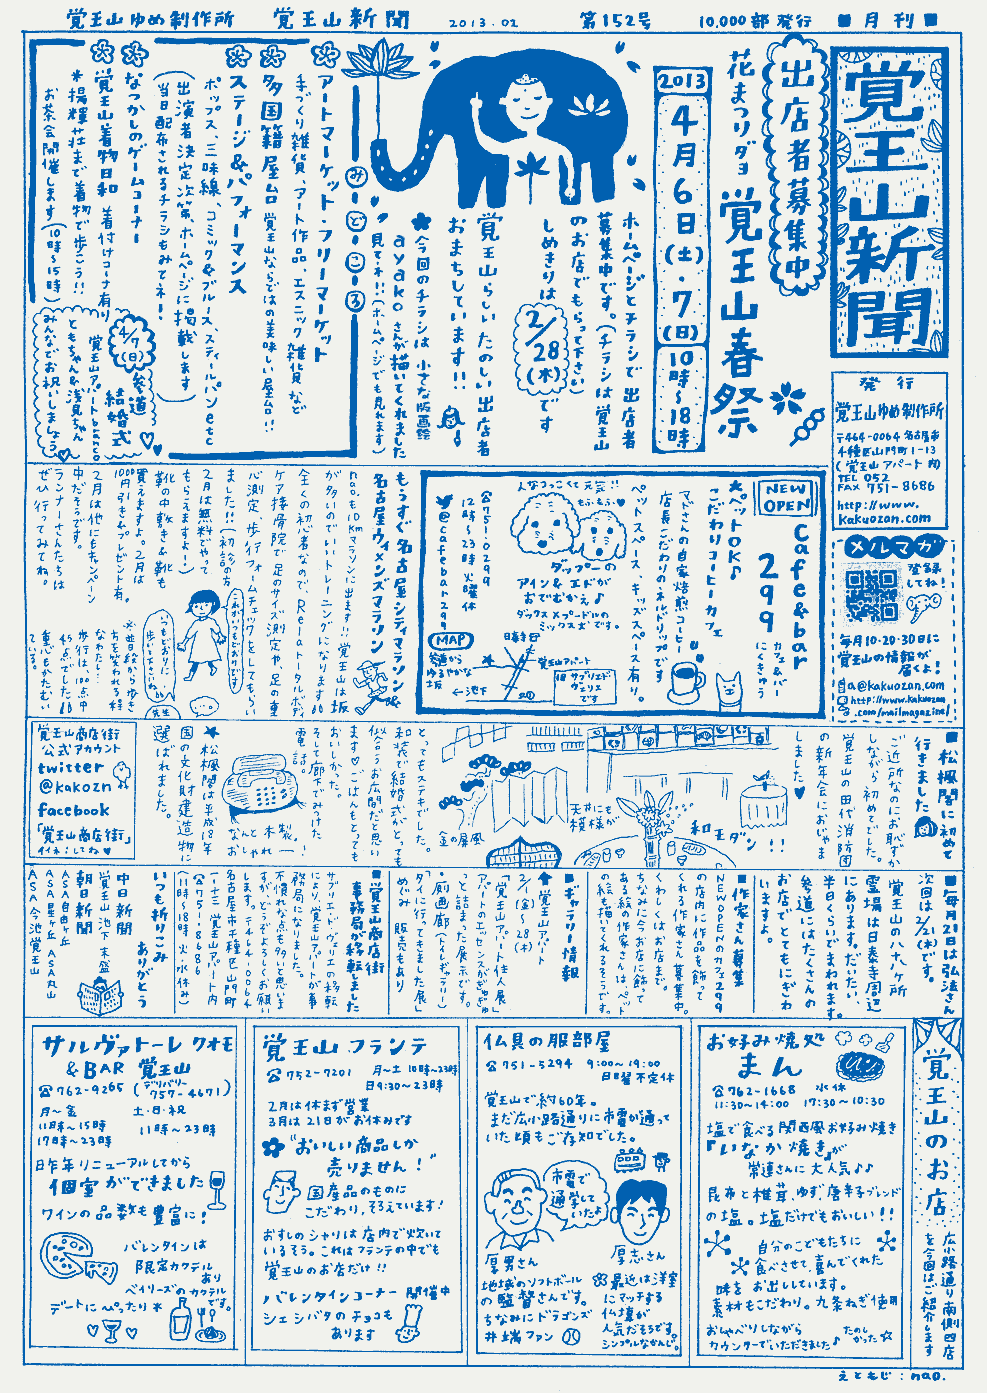 覚王山ゆめ製作所
覚王山新聞
2013.02
第152号
10,000部発行
■月刊■
覚王山新聞
発行
覚王山ゆめ製作所
〒464-0064 名古屋市
千種区山門町1-13
(覚王山アパート内)
TEL 052
FAX 751-8686
http://www.
kakuozan.com
メルマガ
登録
してね!
毎月10・20・30日に
覚王山の情報が
届くよ!
a@kakuozan.com
http://www.kakuozan
.com/mailmagazine/
出店者募集中
花まつりダヨ
覚王山春祭
2013
4月6日(土)・7(日)
10時〜18時
ホームページとチラシで出店者
募集中です。(チラシは覚王山
のお店でもらって下さい)
しめきりは2/28(木)です
覚王山らしいたのしい出店者
おまちしています!!
今回のチラシは小さな版画館
ayakoさんが描いてくれました
見てネ!!(ホームページでも見れます)
みどころ
アートマーケット・フリーマーケット
手づくり雑貨、アート作品、エスニック雑貨など
多国籍屋台
覚王山ならではの美味しい屋台!!
ステージ&パフォーマンス
ポップス、三味線、コミック&ブルース、スティールパンetc
(出演者決定次第ホームページに掲載します
当日配布されるチラシもみてネ!)
なつかしのゲームコーナー
覚王山着物日和
着付けコーナー有り
*揚輝荘まで着物で歩こう!!
お茶会開催します(10時〜15時)
4/7(日)
参道結婚式
覚王山アパートbanco
ともちゃん&浅見ちゃん
みんなでお祝いしましょう
NEW OPEN
Cafe&bar
299
カフェ&バーにくきゅう
★ペットOK♪
こだわりコーヒーカフェ
マドさんの自家焙煎コーヒー
店長こだわりのネルドリップです
ペットスペース、キッズスペース有り。
人なつっこくて元気!!
もふもふ
ダップーの
アイン&エドが
おでむかえ♪
ダックス×プードルの
ミックス犬です。
☎751-0299
12時〜23時 火曜休
@cafebar299
MAP
参道から
ゆるやかな
上坂
←池下
日泰寺
覚王山アパート
旧サブリエド
ヴェリエ
です
もうすぐ名古屋シティマラソン&
名古屋ウィメンズマラソン
naoも10kmマラソンに出ます!!覚王山は坂
が多いのでいいトレーニングになります
全くの初心者なので、Relaトータルボディ
ケア接骨院で足のサイズ測定や、足の重
心測定、歩行フォームチェックをしてもらい
ました!!初診の方、
2月は無料でやって
もらえますよー♪
靴の中敷き&靴も
買えますよ。2月は
1000円引き&プレゼント有。
2月は他にもキャンペーン
中だそうです。
ランナーさんたちは
ぜひ行ってみてね。
これがいつもどおりです
いつもどおりに
歩いて下さいね。
先生
※普段から歩き
方を笑われる程
なわたし…
歩行は100点中
45点でした。
重心もかたむい
ている。
■松楓閣に初めて
行きました
ご近所なのにお恥ずか
しながら初めてでした。
覚王山の田代消防団
の新年会におじゃま
しました♥
天井にも
模様が
和モダン
金の屏風
とってもステキでした。
和装で結婚式がとっても
似合うお広間だと思い
ます♡ごはんもとっても
おいしかった。
そして廊下でみつけた
電話。
なんと木製!
おしゃれ
★松楓閣は平成18年
国の文化財建造物に
選ばれました。
覚王山商店街
公式アカウント
twitter
@kakozn
facebook
「覚王山商店街」
イイネ!してね♥
■毎月21日は弘法さん
次回は2/21(木)です。
覚王山の八十八ヶ所
霊場は日泰寺周辺
にあります。だいたい、
半日くらいでまわれます。
参道にはたくさんの
お店でとてもにぎわ
いますよ。
■作家さん募集
NEWOPENのカフェ299
の店内に作品を飾って
くれる作家さん募集中。
くわしくはお店まで。
ちなみに今お店に飾って
ある絵の作家さんは、ペット
の絵も描いてくれるそうです。
■ギャラリー情報
覚王山アパート
2/1(金)〜28(木)
「覚王山アパート住人展」
アパートのエッセンスがぎゅぎゅ
っと詰まった展示です。
・厠画廊(トイレギャラリー)
タイに行ってきました展
めぐみ 販売もあり
■覚王山商店街
事務局が移転しました
サブリエ・ド・ヴェリエの移転
により、覚王山アパートが事
務局になりました。
不慣れな点も多々と思いま
すが、どうぞよろしくお願い
します。〒464-0064
名古屋市千種区山門町
1-13 覚王山アパート内
☎751-8686
(11時〜18時 火・水休み)
いつも折りこみ
ありがとう
中日新聞
覚王山 池下 末盛
朝日新聞
ASA自由ヶ丘
ASA星ヶ丘 ASA丸山
ASA今池覚王山
覚王山のお店
広小路通り南側四店
を今回はご紹介します
お好み焼処
まん
☎762-1668 水休
11:30〜14:00 17:30〜10:30
塩で食べる関西風お好み焼き
「いなか焼き」が
常連さんに大人気♪♪
昆布と椎茸、ゆず、唐辛子ブレンド
の塩。塩だけでもおいしい!!
自分のこどもたちに
食べさせて、喜んでくれた
味をお出ししています。
素材もこだわり。九条ねぎ使用
おしゃべりしながら
カウンターでいただきました♪
たのしかった☆
仏具の服部屋
☎751-5294 9:00〜19:00
日曜不定休
覚王山で約60年。
まだ広小路通りに市電が通って
いた頃もご存知でした。
市電で
通学して
いたよ
厚男さん
厚志さん
地域のソフトボール
の監督さんです。
ちなみにドラゴンズ
井端ファン
最近は洋室
にマッチする
仏壇が
人気だそうです。
シンプルなかんじ。
覚王山フランテ
☎752-7201 月〜土10時〜23時
日9:30〜23時
2月は休まず営業
3月は21日がお休みです
“おいしい商品しか
売りません!”
国産品のものに
こだわり、そろえています!
おすしのシャリは店内で炊いて
いるそう。これはフランテの中でも
覚王山のお店だけ!!
バレンタインコーナー開催中
シェ シバタのチョコも
あります
サルヴァトーレ クオモ
&BAR 覚王山
☎762-9265 (デリバリー 757-4671)
月〜金
11時〜15時
17時〜23時
土・日・祝
11時〜23時
昨年リニューアルしてから
個室ができました
ワインの品数も豊富に!
バレンタインは
限定カクテル
あり
ベイリーズのカクテル
です。
デートにぴったり*
えともじ:nao.